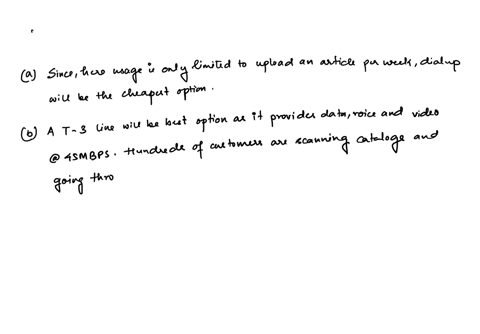 (a) Since, here usage is only limited to upload an article per week, dialup
will be the cheapest option.
(b) A T-3 line will be best option as it provides data, voice and video
@ 45MBPS. Hundreds of customers are scanning cataloge and
going thro